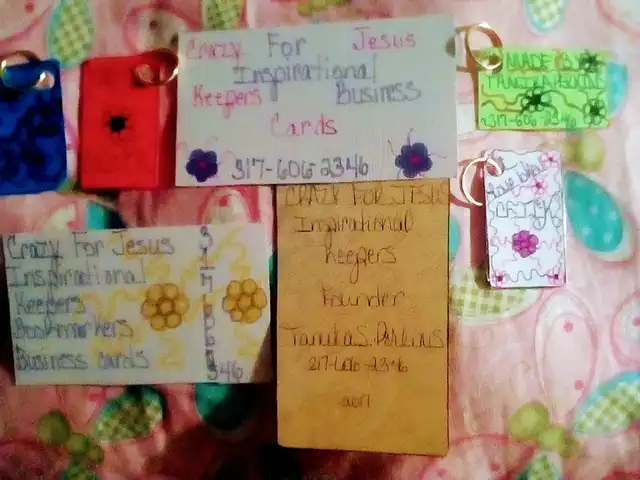 Crazy For Jesus
Inspirational
Keepers Business
Cards
317-606-2346
MADE BY
317-606-2346
Crazy For Jesus
Inspirational
Keepers
Bookmarkers
Business cards
346
CRAZY FOR JESUS
Inspirational
Keepers
Founder
Perkins
317-606-2346
2017